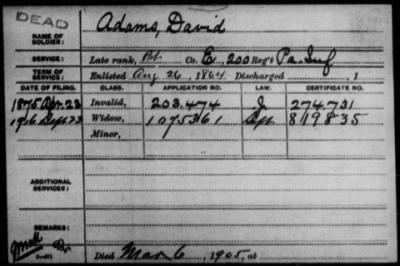 DEAD
NAME OF SOLDIER: Adams, David
SERVICE: Late rank, Pvt. Co. E, 200 Reg't Pa. Inf
TERM OF SERVICE: Enlisted Aug. 26, 1864 Discharged , 1
DATE OF FILING. CLASS. APPLICATION NO. LAW. CERTIFICATE NO.
1875 Apr. 22 Invalid, 203.474 274.731
Sept. 23 Widow, 1075361 819835
Minor,
ADDITIONAL SERVICES:
REMARKS:
Died Mar 6, 1905, at